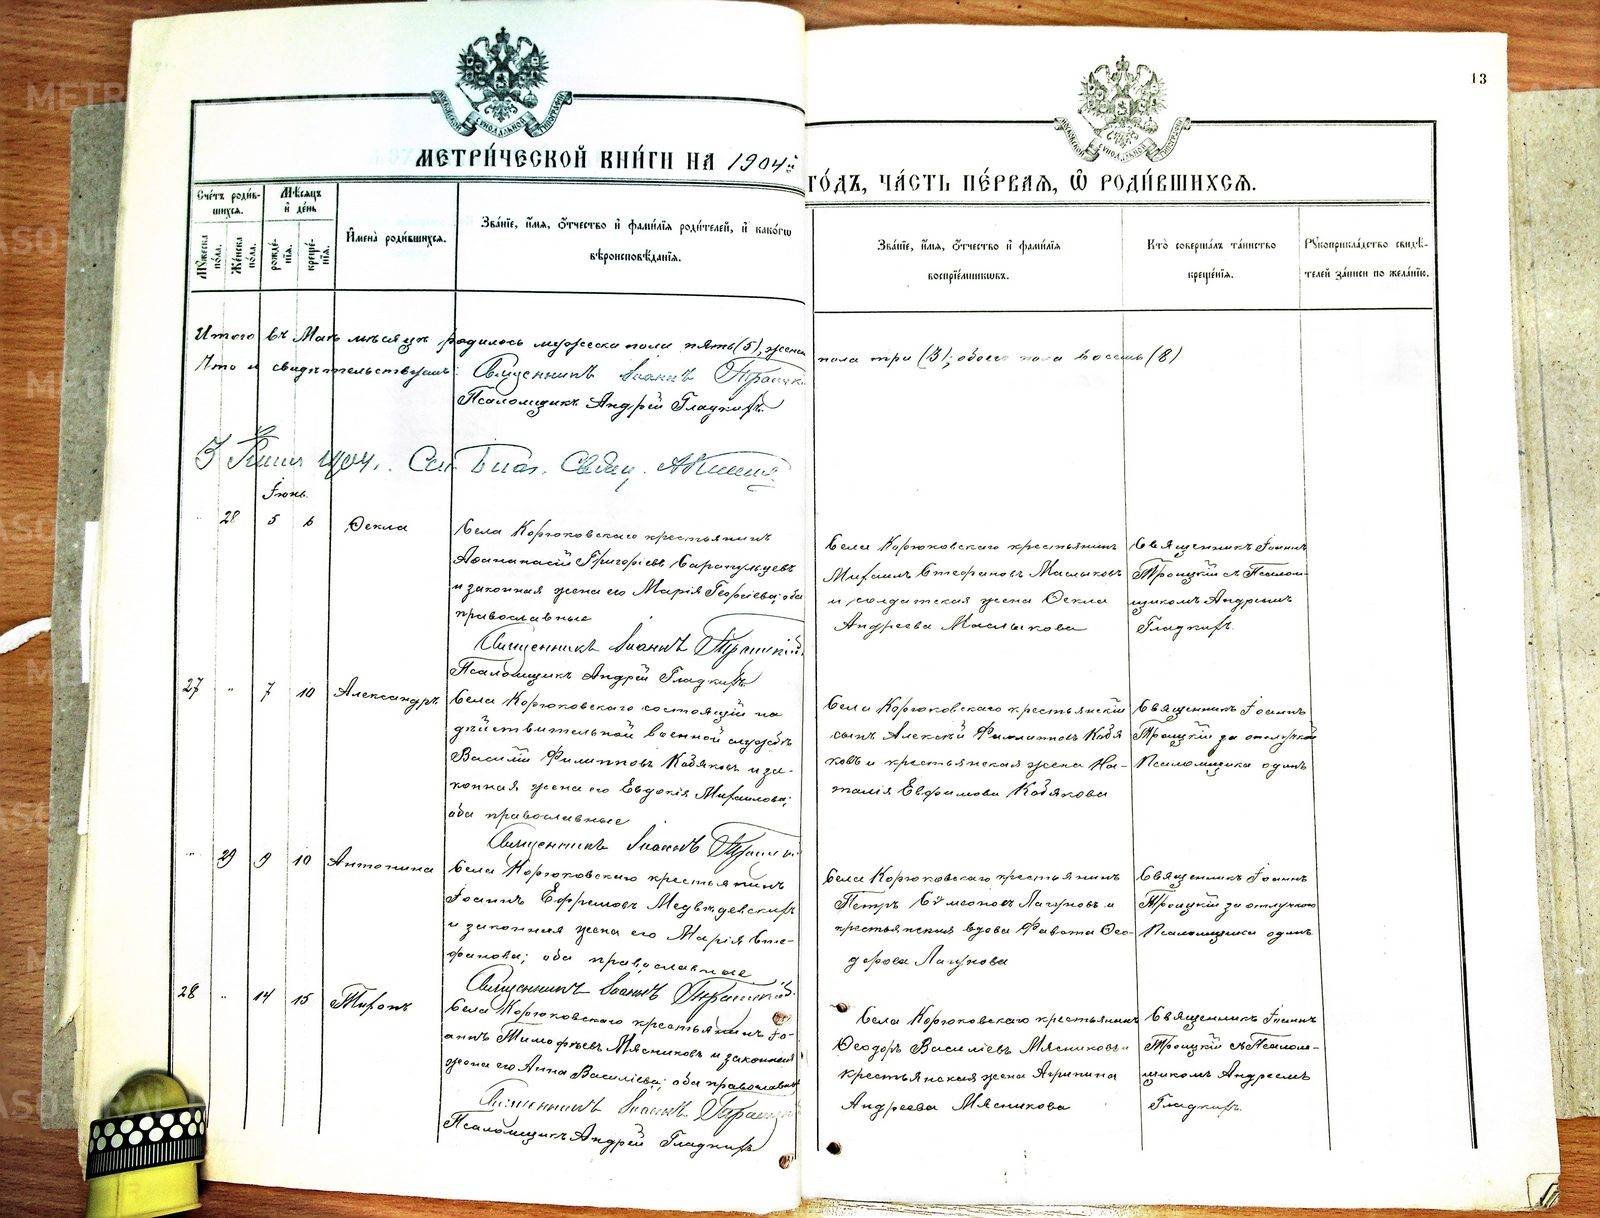 13
МЕТРИ́ЧЕСКОЙ КНИ́ГИ НА 1904й
ГО́ДЪ, ЧА́СТЬ ПЕ́РВАЯ, Ѽ РОДИ́ВШИХСЯ.
Сче́тъ роди́в-
шихся.
Мѣ́сяцъ
и де́нь
Му́жеска по́ла.
Же́нска по́ла.
рожде́нїя.
креще́нїя.
И҆мена̀ роди́вшихся.
Зва́нїе, и́мя, ѻ҆́тчество и҆ фами́лїя роди́телей, и҆ како́гѡ
вѣроисповѣ́данїя.
Зва́нїе, и́мя, ѻ҆́тчество и҆ фами́лїя
воспрїе́мникѡвъ.
Кто̀ соверша́лъ та́инство
креще́нїя.
Рꙋкоприкла́дство свидѣ́-
телей за́писи по жела́нїю.
Итого въ Маѣ мѣсяцѣ родилось мужеска пола пять (5), женска
пола три (3); обоего пола восемь (8)
Что и свидѣтельствуемъ: Священникъ Іоаннъ Троицкій
Псаломщикъ Андрей Гладкихъ
3 Іюня 1904 г.
Іюнь.
28 5 6 Ѳекла
Села Корюковскаго крестьянинъ
Аѳанасій Григоріевъ Сарапульцевъ
и законная жена его Марія Георгіева; оба
православные
Священникъ Іоаннъ Троицкій
Псаломщикъ Андрей Гладкихъ
Села Корюковскаго крестьянинъ
Михаилъ Стефановъ Маслыковъ
и солдатская жена Ѳекла
Андреева Маслыкова
Священникъ Іоаннъ
Троицкій съ Псалом-
щикомъ Андреемъ
Гладкихъ.
27 " 7 10 Александръ
Села Корюковскаго состоящій на
дѣйствительной военной службѣ
Василій Филипповъ Кобяковъ и за-
конная жена его Евдокія Михаилова;
оба православные
Священникъ Іоаннъ Троицкій
Села Корюковскаго крестьянскій
сынъ Алексѣй Филипповъ Кобя-
ковъ и крестьянская жена На-
талія Евфимова Кобякова
Священникъ Іоаннъ
Троицкій за отлучкой
Псаломщика одинъ
" 29 9 10 Антонина
Села Корюковскаго крестьянинъ
Іоаннъ Ефремовъ Медвѣдевскихъ
и законная жена его Марія Сте-
фанова; оба православные
Священникъ Іоаннъ Троицкій
Села Корюковскаго крестьянинъ
Петръ Сѵмеоновъ Лагуновъ и
крестьянская вдова Ѳео-
дорова Лагунова
Священникъ Іоаннъ
Троицкій за отлучкою
Псаломщика одинъ
28 " 14 15 Тихонъ
Села Корюковскаго крестьянинъ Іо-
аннъ Тимофѣевъ Мясниковъ и законная
жена его Анна Василіева; оба православные
Священникъ Іоаннъ Троицкій
Псаломщикъ Андрей Гладкихъ
Села Корюковскаго крестьянинъ
Ѳеодоръ Василіевъ Мясниковъ и
крестьянская жена Агрипина
Андреева Мясникова
Священникъ Іоаннъ
Троицкій съ Псалом-
щикомъ Андреемъ
Гладкихъ.